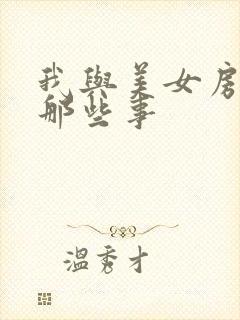 我與美女房
那些事
溫秀才